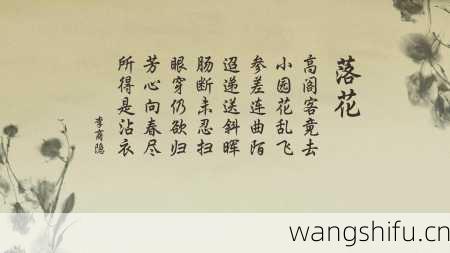 落花
高阁客竟去
小园花乱飞
参差连曲陌
迢递送斜晖
肠断未忍扫
眼穿仍欲归
芳心向春尽
所得是沾衣
李商隐
wangshifu.cn